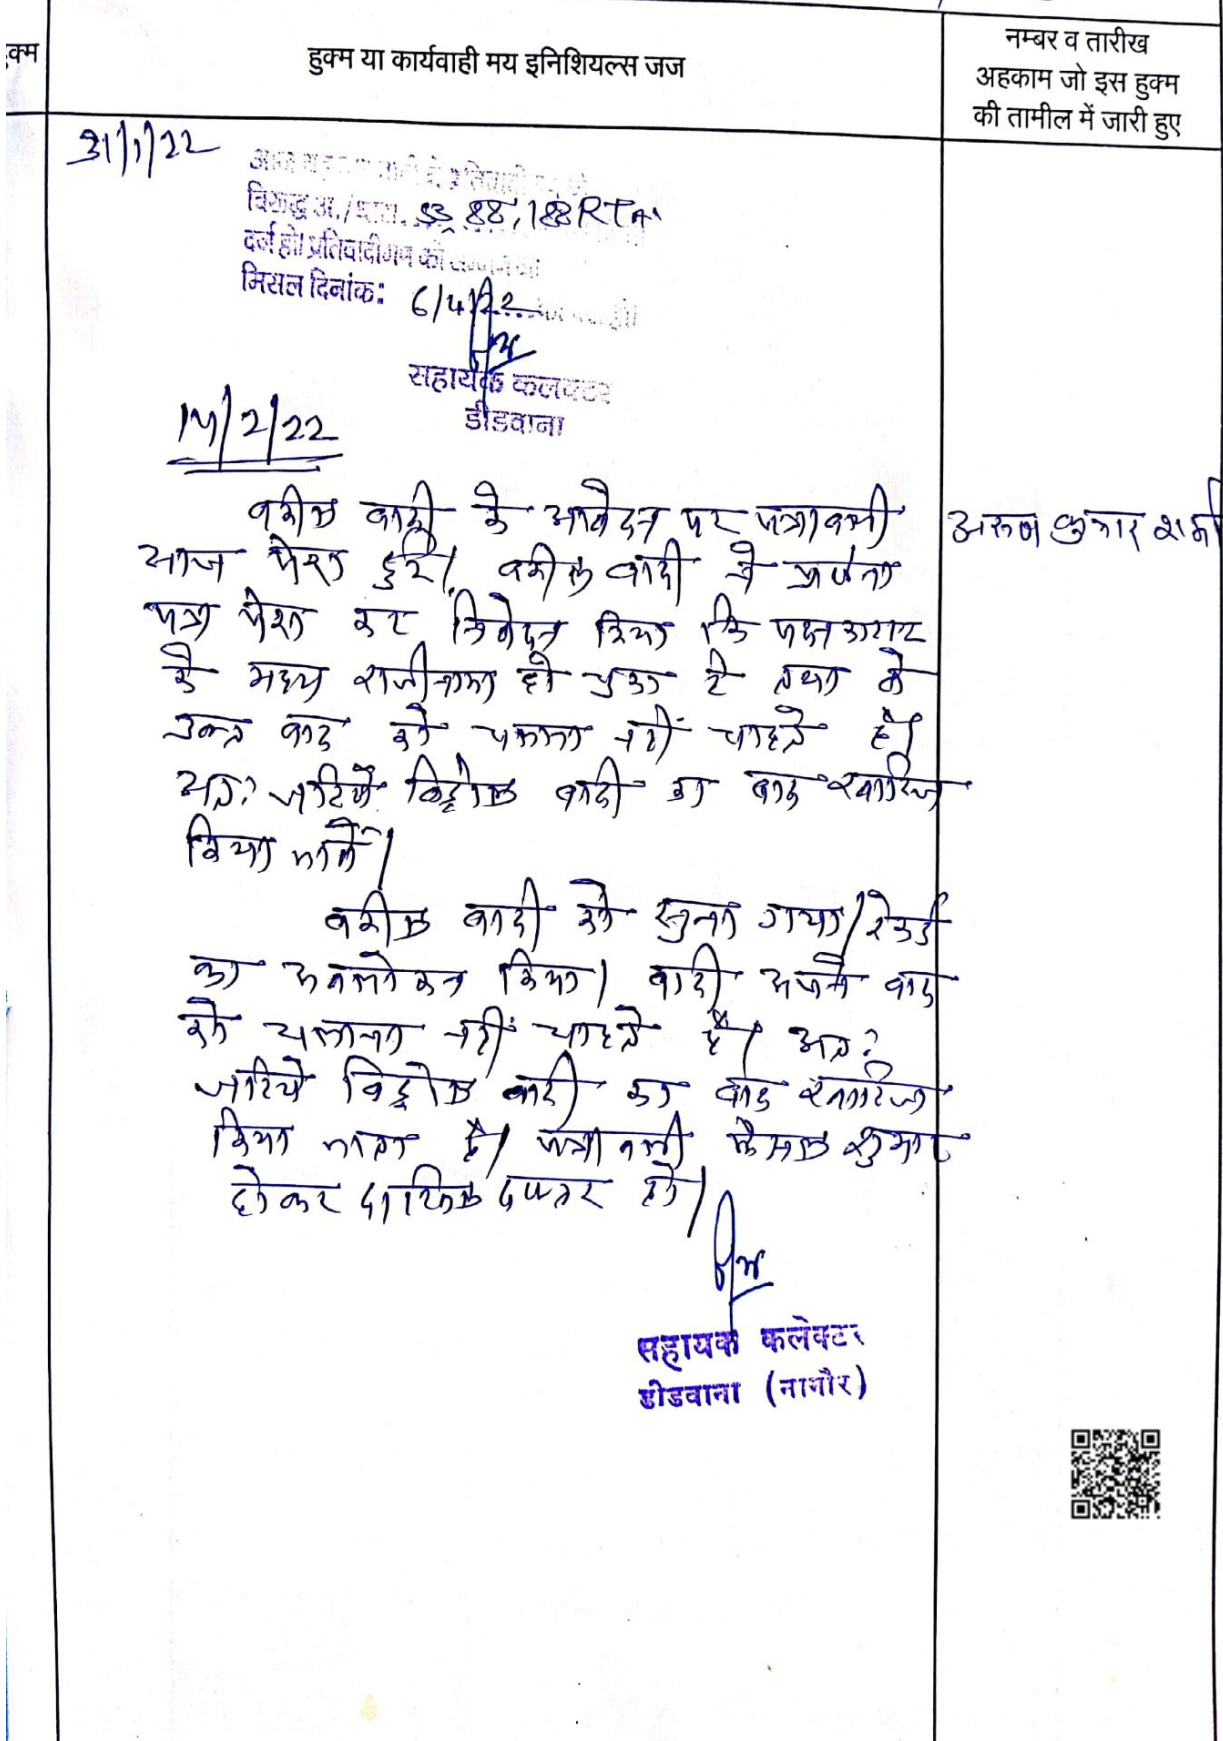 हुक्म
हुक्म या कार्यवाही मय इनिशियल्स जज
नम्बर व तारीख
अहकाम जो इस हुक्म
की तामील में जारी हुए
31/1/22
विरूद्ध अ./धारा. 53, 88, 188 RTA
दर्ज हो। प्रतिवादीगण को
मिसल दिनांक: 6/4/22
सहायक कलक्टर
डीडवाना
14/2/22
वकील वादी के आवेदन पर पत्रावली
अरूण कुमार शर्मा
आज पेश हुई। वकील वादी ने प्रार्थना
पत्र पेश कर निवेदन किया कि पक्षकारान
के मध्य राजीनामा हो चुका है तथा वे
उक्त वाद को चलाना नहीं चाहते हैं।
अतः जरिये विड्रोल वादी का वाद खारिज
किया जावें।
वकील वादी को सुना गया। रेकर्ड
का अवलोकन किया। वादी अपने वाद
को चलाना नहीं चाहते हैं। अतः
जरिये विड्रोल वादी का वाद खारिज
किया जाता है। पत्रावली फैसल शुमार
होकर दाखिल दफ्तर हो।
सहायक कलेक्टर
डीडवाना (नागौर)